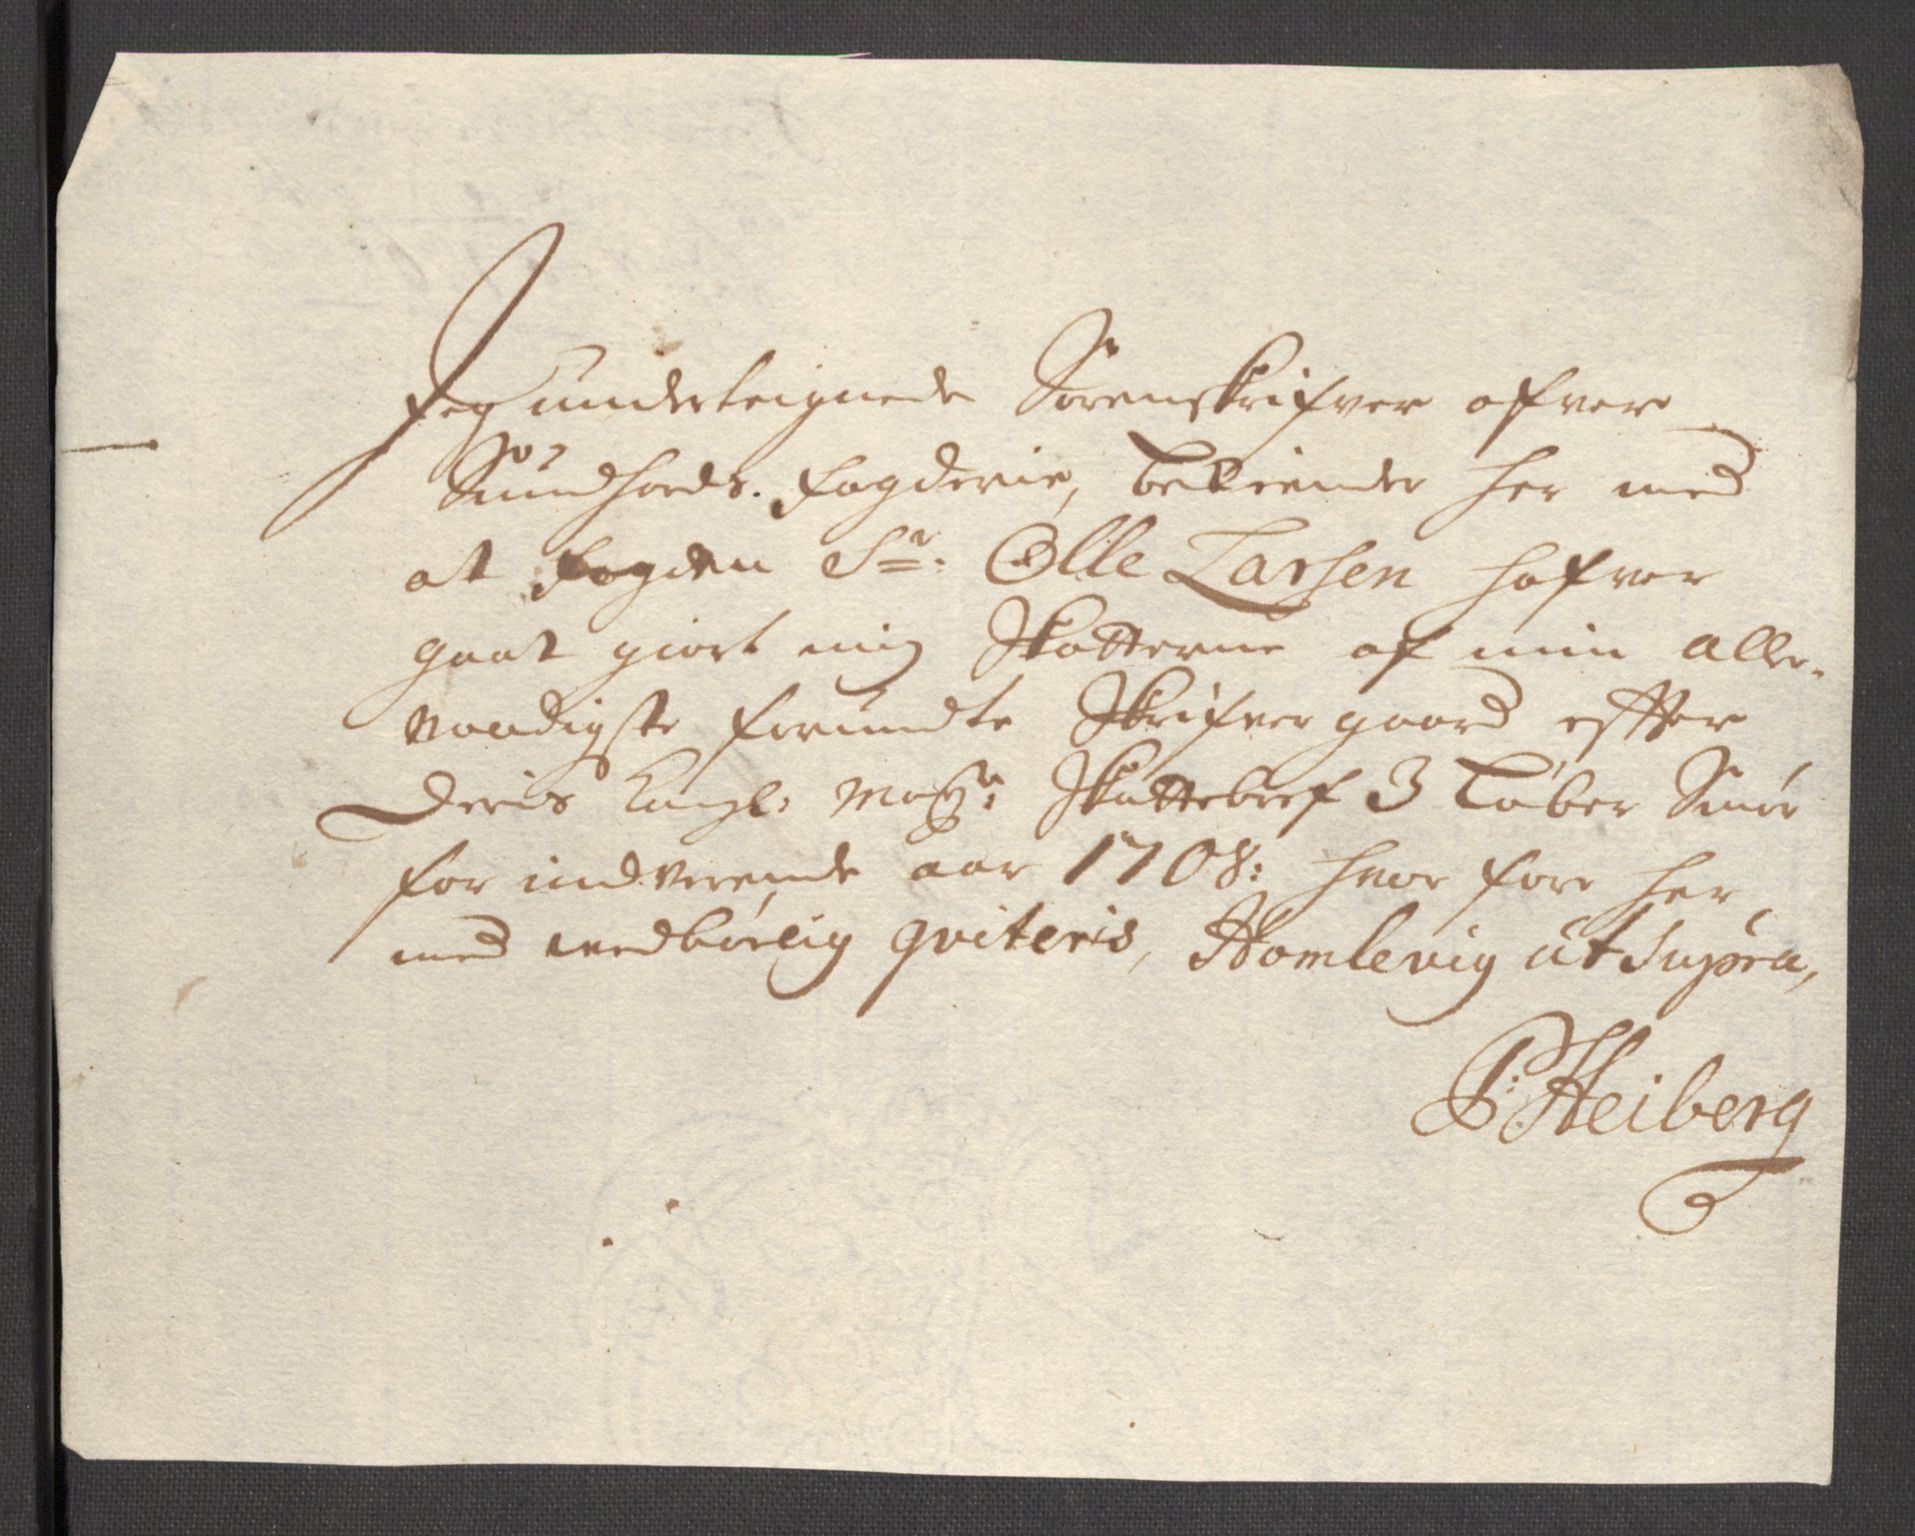 Jeg underteignede Sorenskrifver ofver
Sundhords. fogderie, bekiender her med
at fogden Sr. Olle Larsen hafver
gaat giort mig Skatterne af min aller-
naadigste forundte Skrifvergaard effter
Deris Kongl: Mayts: Skattebref 3 Løber Smør
for indverende aar 1708: hvor fore her
med vedbørlig qviteris, Homlevig ut supra,
P: Heiberg